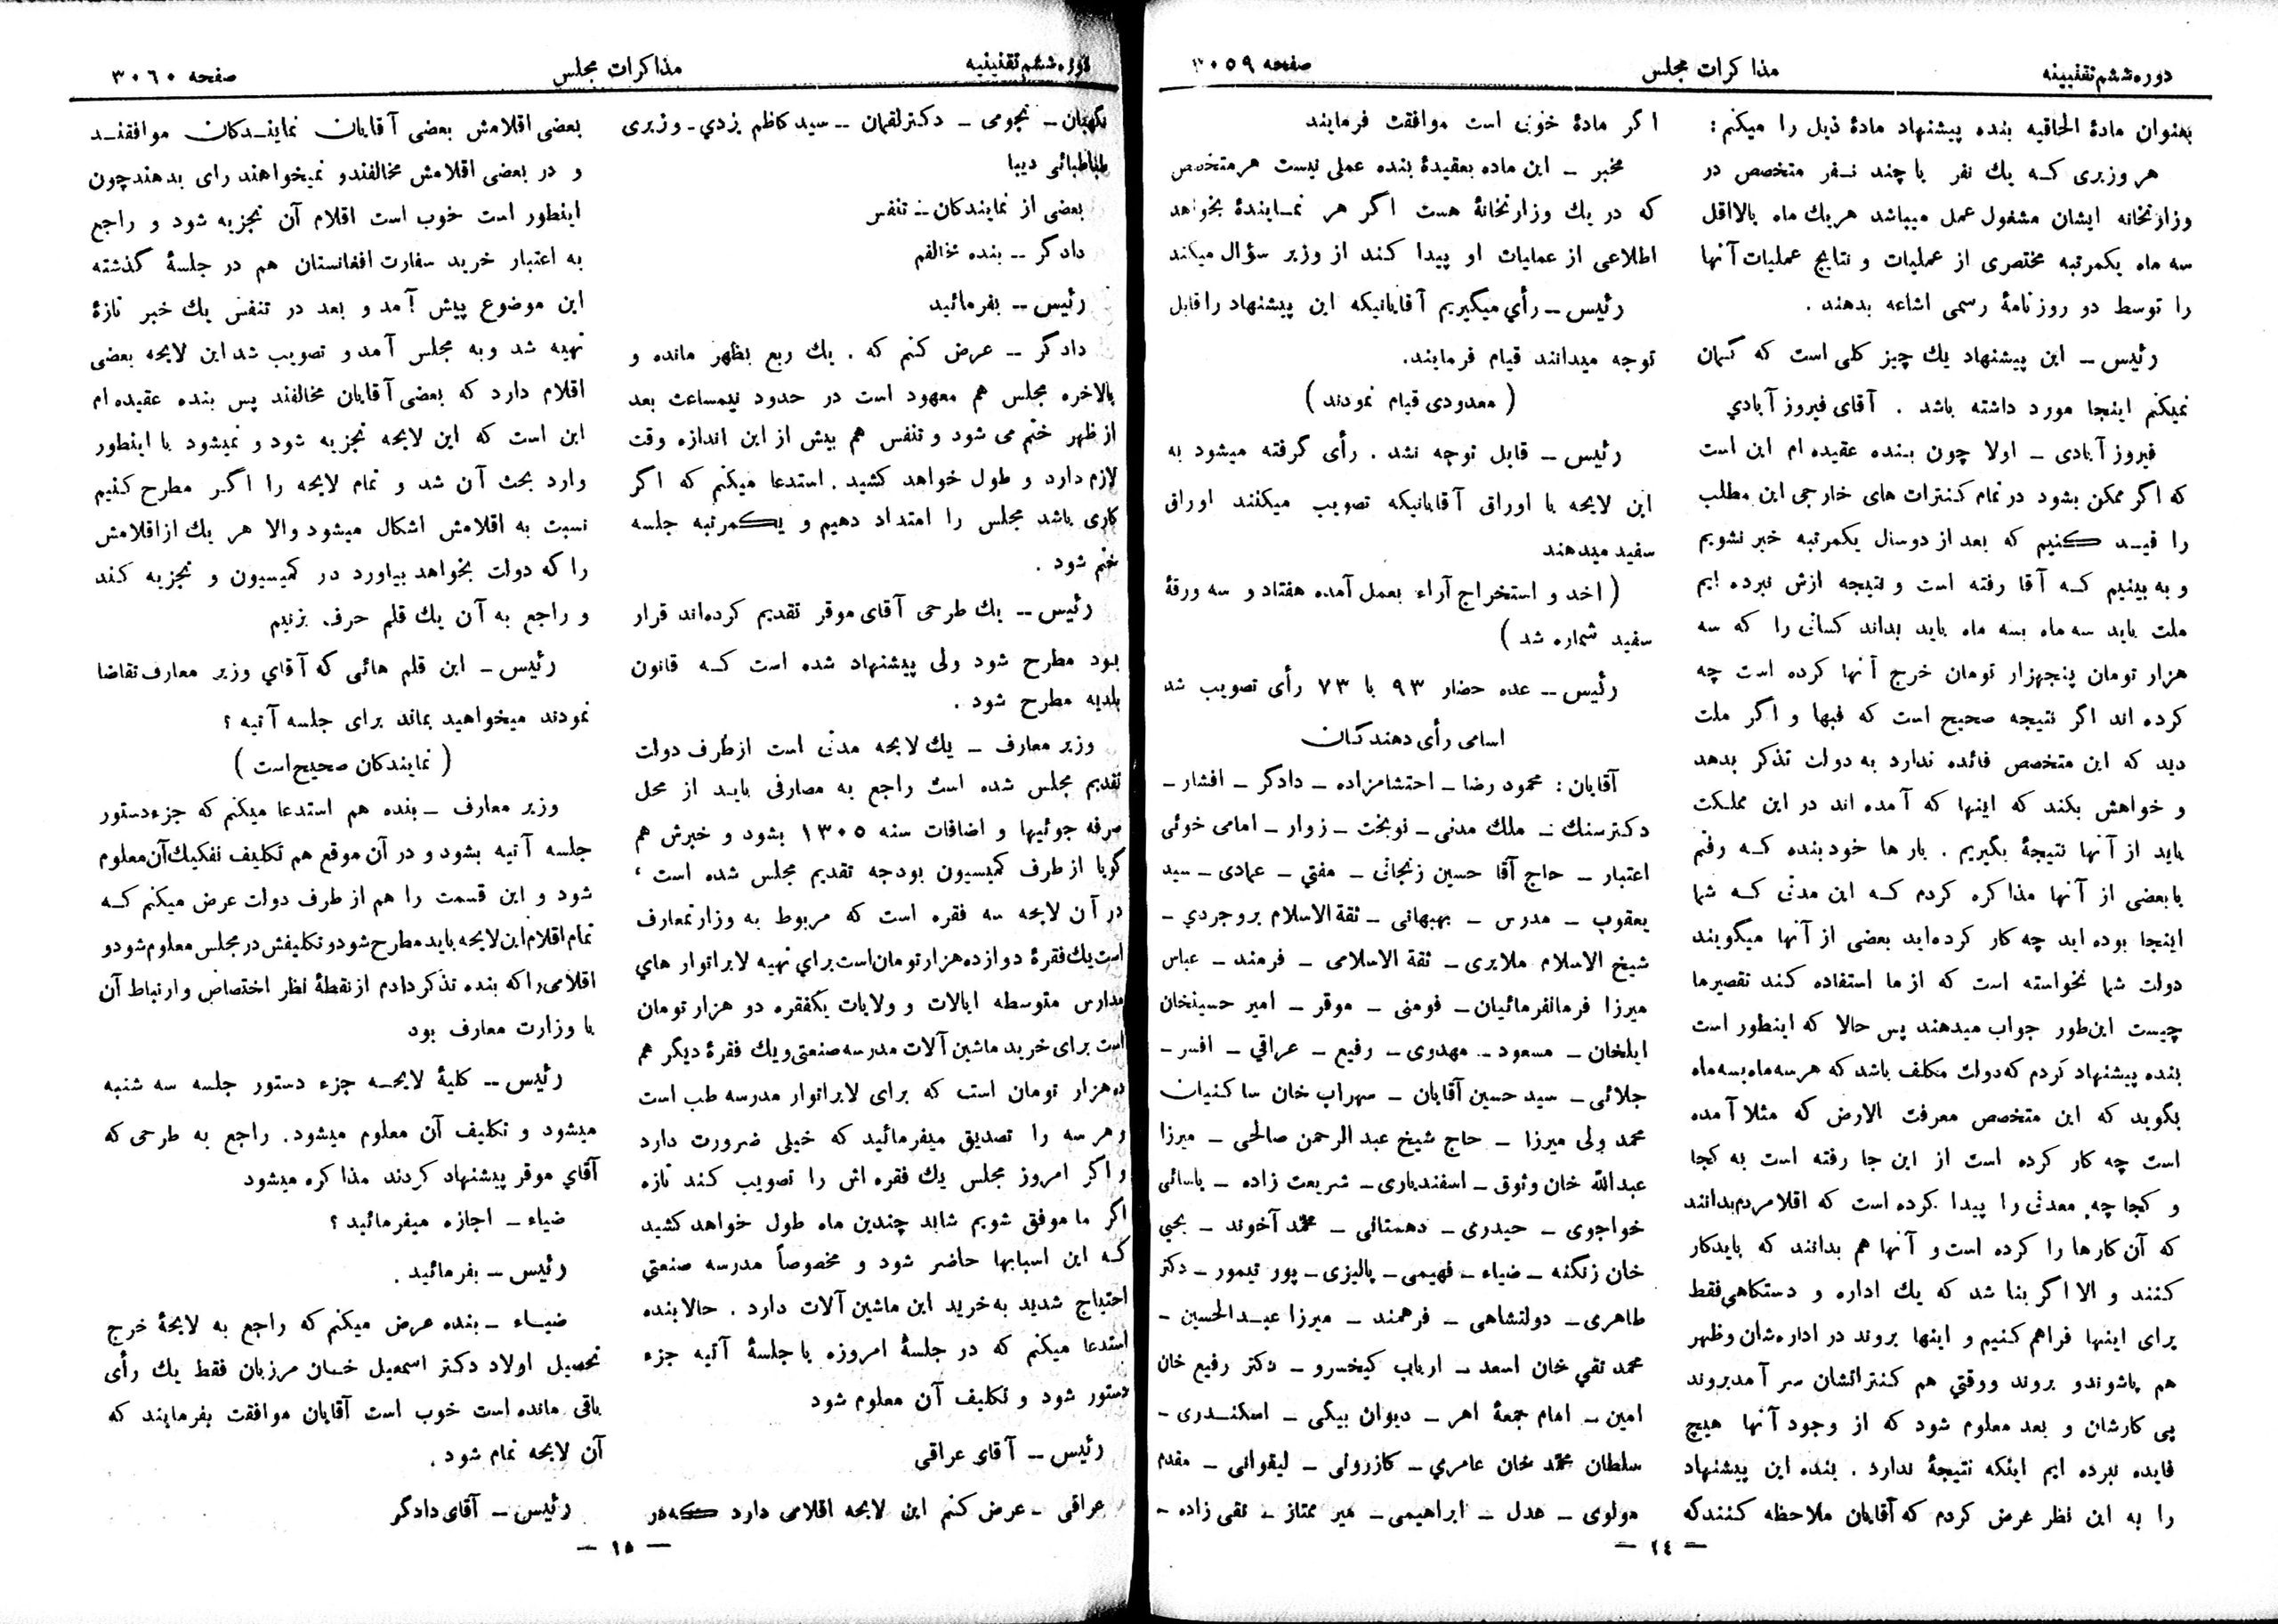 دوره ششم تقنینیه
مذاکرات مجلس
صفحه ۳۰۵۹
بعنوان مادهٔ الحاقیه بنده پیشنهاد مادهٔ ذیل را میکنم:
هر وزیری که یك نفر یا چند نفر متخصص در
وزارتخانه ایشان مشغول عمل میباشد هر یك ماه یا لااقل
سه ماه یکمرتبه مختصری از عملیات و نتایج عملیات آنها
را توسط دو روزنامهٔ رسمی اشاعه بدهند .
رئیس ــ این پیشنهاد یك چیز کلی است که گمان
نمیکنم اینجا مورد داشته باشد . آقای فیروز آبادي
فیروز آبادی ــ اولا چون بنده عقیده ام این است
که اگر ممکن بشود در تمام کنترات های خارجی این مطلب
را قید کنیم که بعد از دوسال یکمرتبه خبر نشویم
و به بینیم که آقا رفته است و نتیجه ازش نبرده ایم
ملت باید سه ماه بسه ماه باید بداند کسانی را که سه
هزار تومان پنجهزار تومان خرج آنها کرده است چه
کرده اند اگر نتیجه صحیح است که فبها و اگر ملت
دید که این متخصص فائده ندارد به دولت تذکر بدهد
و خواهش بکند که اینها که آمده اند در این مملکت
باید از آنها نتیجهٔ بگیریم . بار ها خود بنده که رفتم
با بعضی از آنها مذاکره کردم که این مدتی که شما
اینجا بوده اید چه کار کرده‌اید بعضی از آنها میگویند
دولت شما نخواسته است که از ما استفاده کند تقصیر ما
چیست این‌طور جواب میدهند پس حالا که اینطور است
بنده پیشنهاد کردم که دولت مکلف باشد که هر سه ماه بسه ماه
بگوید که این متخصص معرفت الارض که مثلا آمده
است چه کار کرده است از این جا رفته است به کجا
و کجا چه معدنی را پیدا کرده است که اقلا مردم بدانند
که آن کارها را کرده است و آنها هم بدانند که باید کار
کنند و الا اگر بنا شد که یك اداره و دستگاهی فقط
برای اینها فراهم کنیم و اینها بروند در اداره‌شان وظهر
هم پاشوند و بروند و وقتی هم کنتراتشان سر آمد بروند
پی کارشان و بعد معلوم شود که از وجود آنها هیچ
فایده نبرده ایم اینکه نتیجهٔ ندارد . بنده این پیشنهاد
را به این نظر عرض کردم که آقایان ملاحظه کنند که
اگر مادهٔ خوبی است موافقت فرمایند
مخبر ــ این ماده بعقیدهٔ بنده عملی نیست هر متخصص
که در یك وزارتخانهٔ هست اگر هر نمایندهٔ بخواهد
اطلاعی از عملیات او پیدا کند از وزیر سؤال میکند
رئیس ــ رأي میگیریم آقایانیکه این پیشنهاد را قابل
توجه میدانند قیام فرمایند.
( معدودی قیام نمودند )
رئیس ــ قابل توجه نشد . رأی گرفته میشود به
این لایحه با اوراق آقایانیکه تصویب میکنند اوراق
سفید میدهند
( اخد و استخراج آراء بعمل آمده هفتاد و سه ورقهٔ
سفید شماره شد )
رئیس ــ عده حضار ۹۳ با ۷۳ رأی تصویب شد
اسامی رأی دهندگان
آقایان : محمود رضا ــ احتشامزاده ــ دادگر ــ افشار ــ
دکتر سنك ــ ملك مدنی ــ نوبخت ــ زوار ــ امامی خوئی
اعتبار ــ حاج آقا حسین زنجانی ــ مفتي ــ عمادی ــ سید
یعقوب ــ مدرس ــ بهبهانی ــ ثقة الاسلام بروجردي ــ
شیخ الاسلام ملایری ــ ثقة الاسلامی ــ فرمند ــ عباس
میرزا فرمانفرمائیان ــ فومنی ــ موقر ــ امیر حسینخان
ایلخان ــ مسعود ــ مهدوی ــ رفیع ــ عراقي ــ افسر ــ
جلائی ــ سید حسین آقایان ــ سهراب خان ساکنیان
محمد ولی میرزا ــ حاج شیخ عبد الرحمن صالحی ــ میرزا
عبدالله خان وثوق ــ اسفندیاری ــ شریعت زاده ــ یاسائی
خواجوی ــ حیدری ــ دهستانی ــ محمد آخوند ــ یحیی
خان زنگنه ــ ضیاء ــ فهیمی ــ پالیزی ــ پور تیمور ــ دکتر
طاهری ــ دولتشاهی ــ فرهمند ــ میرزا عبدالحسین ــ
محمد تقي خان اسعد ــ ارباب کیخسرو ــ دکتر رفیع خان
امین ــ امام جمعهٔ اهر ــ دیوان بیگی ــ اسکندری ــ
سلطان محمد خان عامري ــ کازرونی ــ لیقوانی ــ مقدم
مولوی ــ عدل ــ ابراهیمی ــ میر ممتاز ــ تقی زاده ــ
— ١٤ —
دوره ششم تقنینیه
مذاکرات مجلس
صفحه ۳۰۶۰
نگهبان ــ نجومی ــ دکتر لقمان ــ سید کاظم یزدي ــ وزیری
طباطبائی دیبا
بعضی از نمایندکان ــ تنفس
دادگر ــ بنده مخالفم
رئیس ــ بفرمائید
دادگر ــ عرض کنم که . یك ربع بظهر مانده و
بالاخره مجلس هم معهود است در حدود نیمساعت بعد
از ظهر ختم می شود و تنفس هم بیش از این اندازه وقت
لازم دارد و طول خواهد کشید . استدعا میکنم که اگر
کاری باشد مجلس را امتداد دهیم و یکمرتبه جلسه
ختم شود .
رئیس ــ یك طرحی آقای موقر تقدیم کرده‌اند قرار
بود مطرح شود ولی پیشنهاد شده است که قانون
بلدیه مطرح شود .
وزیر معارف ــ یك لایحه مدتی است از طرف دولت
تقدیم مجلس شده است راجع به مصارفی باید از محل
صرفه جوئیها و اضافات سنه ۱۳۰۵ بشود و خبرش هم
گویا از طرف کمیسیون بودجه تقدیم مجلس شده است ،
در آن لایحه سه فقره است که مربوط به وزارتمعارف
است یك فقرهٔ دوازده هزار تومان است براي تهیه لابراتوار هاي
مدارس متوسطه ایالات و ولایات یکفقره دو هزار تومان
است برای خرید ماشین آلات مدرسه صنعتی و یك فقرهٔ دیگر هم
ده هزار تومان است که برای لابراتوار مدرسه طب است
و هر سه را تصدیق میفرمائید که خیلی ضرورت دارد
و اگر امروز مجلس یك فقره اش را تصویب کند تازه
اگر ما موفق شویم شاید چندین ماه طول خواهد کشید
که این اسبابها حاضر شود و مخصوصاً مدرسه صنعتي
احتیاج شدید به خرید این ماشین آلات دارد . حالا بنده
استدعا میکنم که در جلسهٔ امروزه یا جلسهٔ آتیه جزء
دستور شود و تکلیف آن معلوم شود
رئیس ــ آقای عراقی
عراقی ــ عرض کنم این لایحه اقلامی دارد که در
بعضی اقلامش بعضی آقایان نمایندکان موافقند
و در بعضی اقلامش مخالفند و نمیخواهند رای بدهند چون
اینطور است خوب است اقلام آن تجزیه شود و راجع
به اعتبار خرید سفارت افغانستان هم در جلسهٔ گذشته
این موضوع پیش آمد و بعد در تنفس یك خبر تازهٔ
تهیه شد وبه مجلس آمد و تصویب شد این لایحه بعضی
اقلام دارد که بعضی آقایان مخالفند پس بنده عقیده ام
این است که این لایحه تجزیه شود و نمیشود با اینطور
وارد بحث آن شد و تمام لایحه را اگر مطرح کنیم
نسبت به اقلامش اشکال میشود والا هر یك از اقلامش
را که دولت بخواهد بیاورد در کمیسیون و تجزیه کند
و راجع به آن یك قلم حرف بزنیم
رئیس ــ این قلم هائی که آقاي وزیر معارف تقاضا
نمودند میخواهید بماند برای جلسه آتیه ؟
( نمایندکان صحیح است )
وزیر معارف ــ بنده هم استدعا میکنم که جزء دستور
جلسه آتیه بشود و در آن موقع هم تکلیف تفکیك آن معلوم
شود و این قسمت را هم از طرف دولت عرض میکنم که
تمام اقلام این لایحه باید مطرح شود و تکلیفش در مجلس معلوم شود و
اقلامی را که بنده تذکر دادم از نقطهٔ نظر اختصاص و ارتباط آن
با وزارت معارف بود
رئیس ــ کلیهٔ لایحه جزء دستور جلسه سه شنبه
میشود و تکلیف آن معلوم میشود. راجع به طرحی که
آقاي موقر پیشنهاد کردند مذاکره میشود
ضیاء ــ اجازه میفرمائید ؟
رئیس ــ بفرمائید .
ضیاء ــ بنده عرض میکنم که راجع به لایحهٔ خرج
تحصیل اولاد دکتر اسمعیل خان مرزبان فقط یك رأی
باقی مانده است خوب است آقایان موافقت بفرمایند که
آن لایحه تمام شود .
رئیس ــ آقای دادگر
— ١٥ —